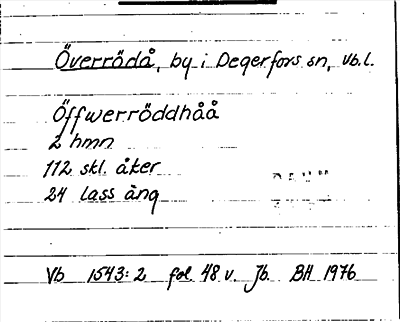 Överrödå, by i Degerfors sn, Vb.l.
Öffwerröddhåå
2 hmn
112 skl. åker
24 lass äng
Vb 1543:2 fol. 48 v. Jb. BH 1976